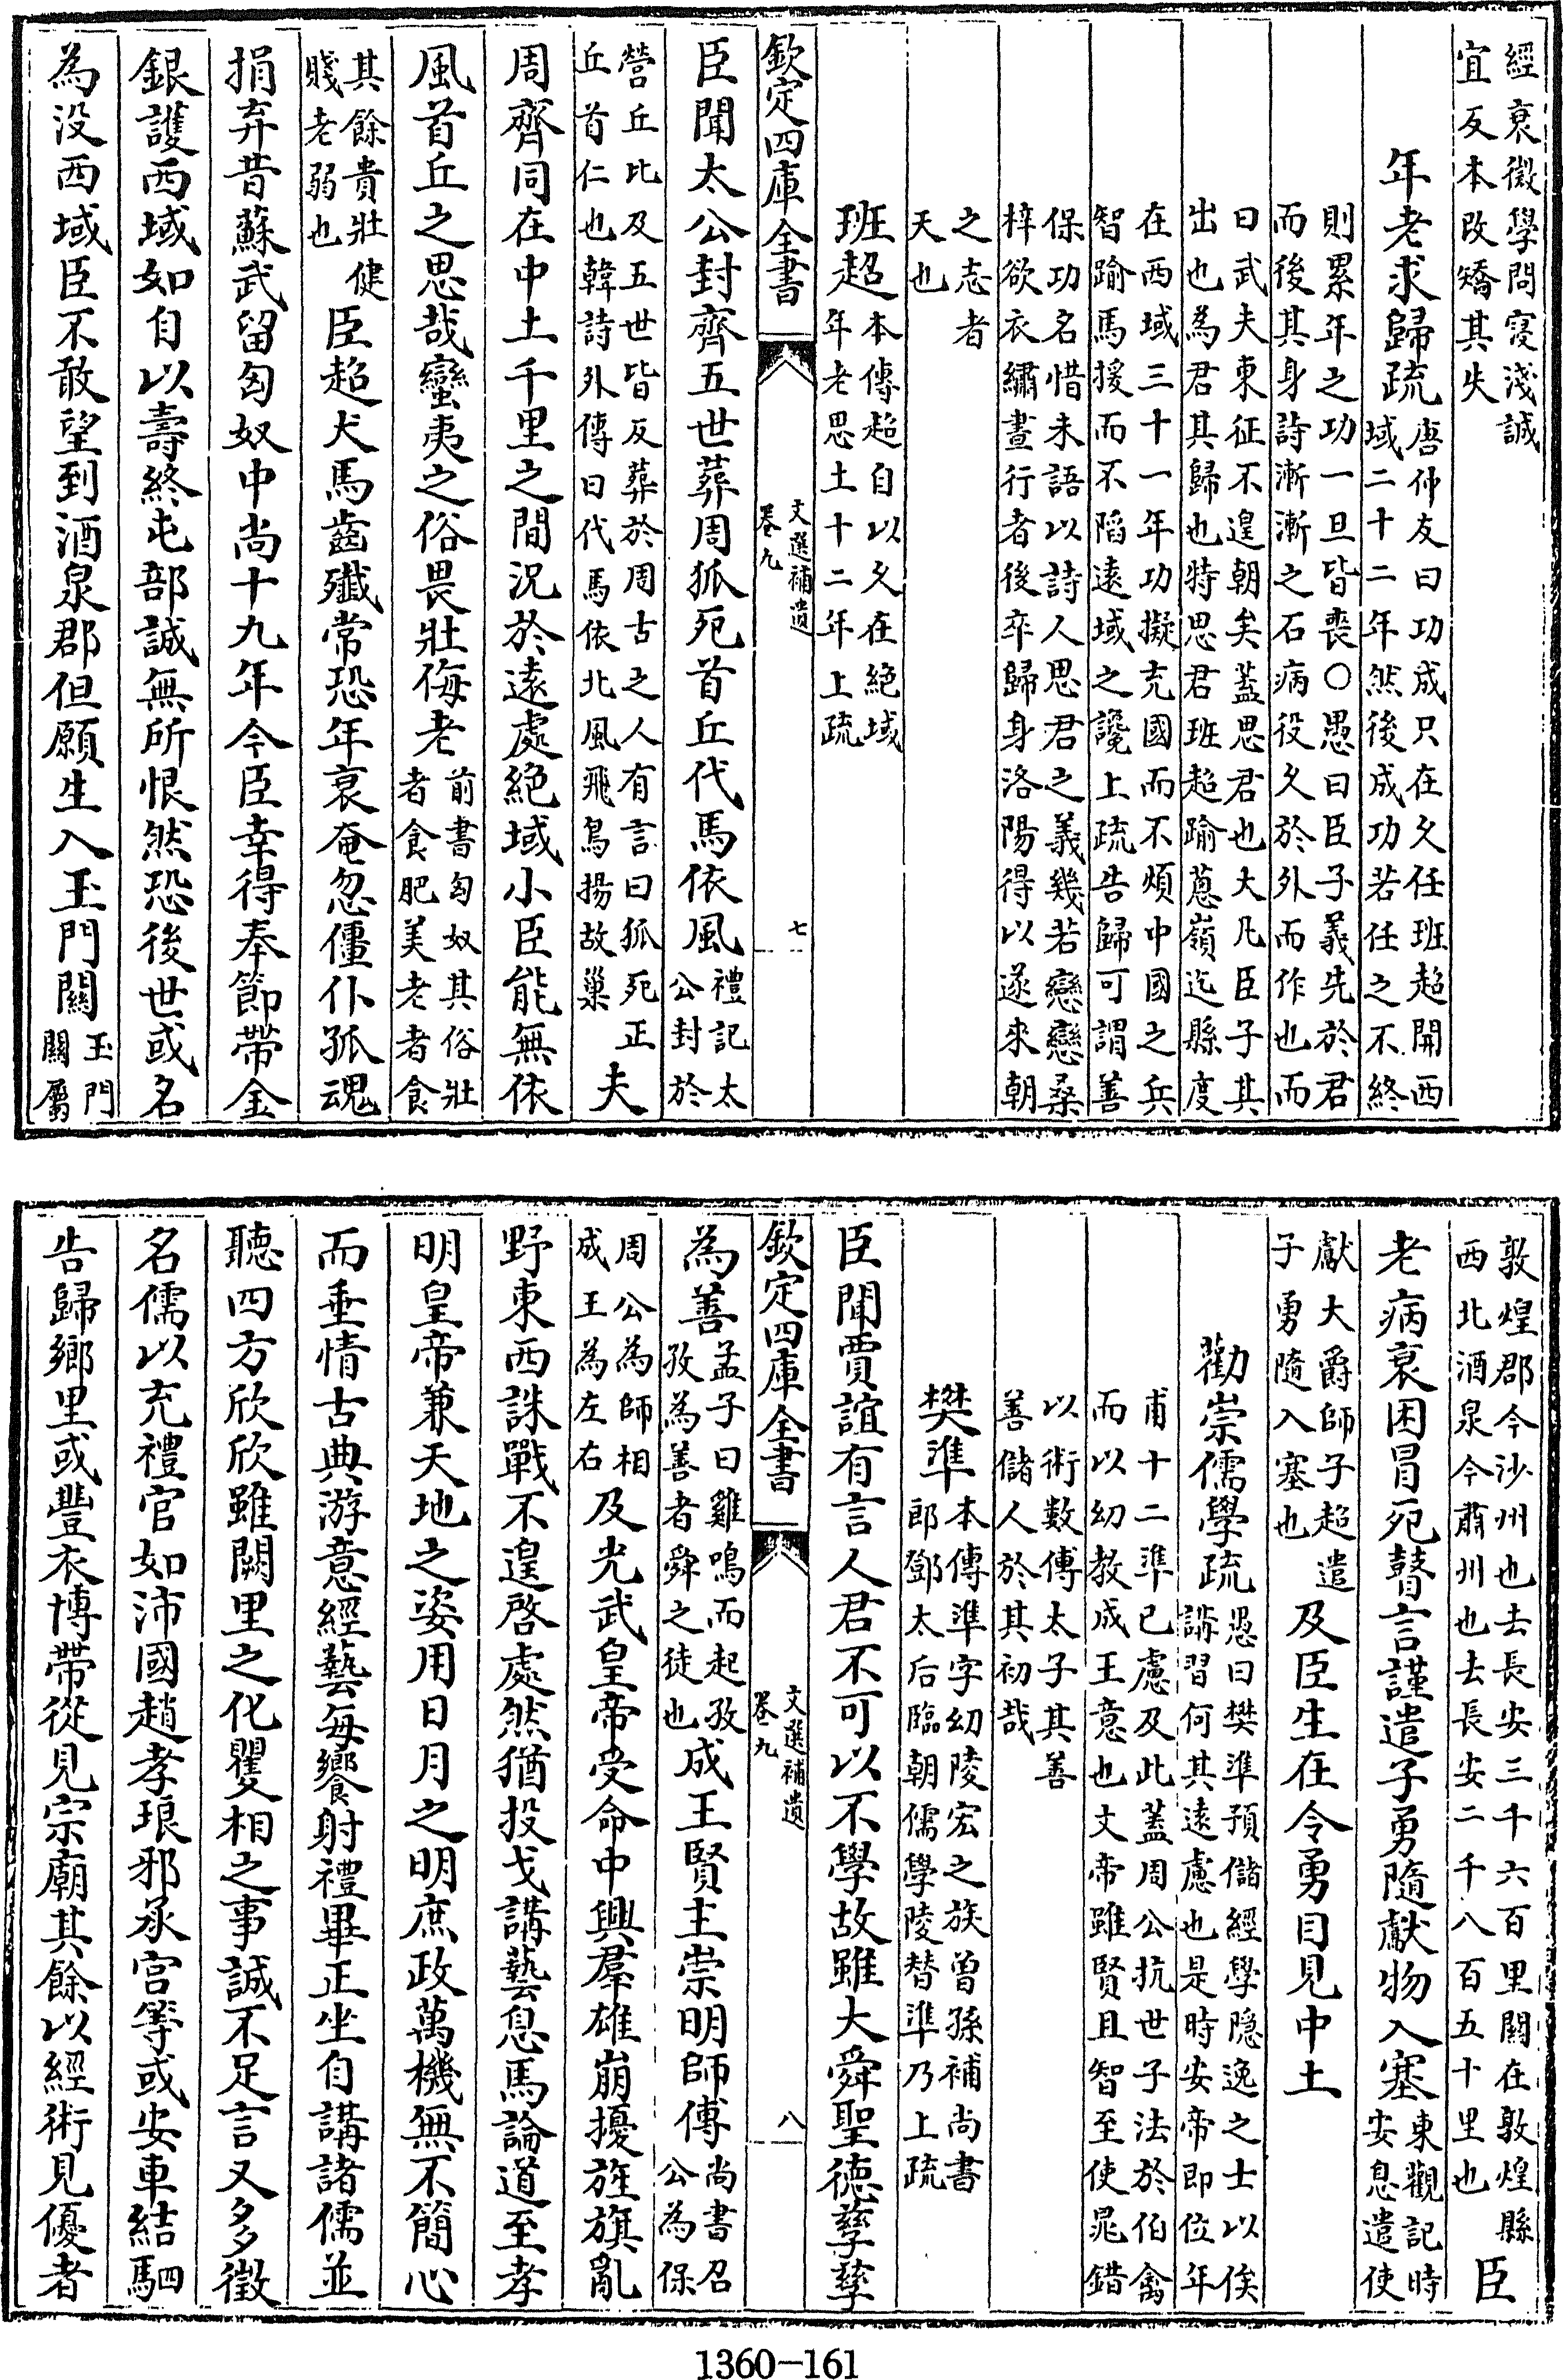 經衰微學問寖淺誠
宜反本改矯其失
年老求歸疏唐仲友曰功成只在久任班超開西
域二十二年然後成功若任之不終
則累年之功一旦皆喪○愚曰臣子義先於君
而後其身詩漸漸之石病役久於外而作也而
曰武夫東征不遑朝矣蓋思君也大凡臣子其
出也為君其歸也特思君班超踰蔥嶺迄縣度
在西域三十一年功擬充國而不煩中國之兵
智踰馬援而不陷遠域之讒上疏告歸可謂善
保功名惜未語以詩人思君之義幾若戀戀桑
梓欲衣繡晝行者後卒歸身洛陽得以遂來朝
之志者
天也
班超本傳超自以久在絕域
年老思土十二年上疏
欽定四庫全書
文選補遺
卷九
七
臣聞太公封齊五世葬周狐死首丘代馬依風禮記太
公封於
營丘比及五世皆反葬於周古之人有言曰狐死正
丘首仁也韓詩外傳曰代馬依北風飛鳥揚故巢
夫
周齊同在中土千里之間況於遠處絕域小臣能無依
風首丘之思哉蠻夷之俗畏壯侮老前書匈奴其俗壯
者食肥美老者食
其餘貴壯健
賤老弱也
臣超犬馬齒殲常恐年衰奄忽僵仆孤魂
捐弃昔蘇武留匈奴中尚十九年今臣幸得奉節帶金
銀護西域如自以壽終屯部誠無所恨然恐後世或名
為没西域臣不敢望到酒泉郡但願生入玉門關玉門
關屬
敦煌郡今沙州也去長安三千六百里關在敦煌縣
西北酒泉今肅州也去長安二千八百五十里也
臣
老病衰困冒死瞽言謹遣子勇隨獻物入塞東觀記時
安息遣使
獻大爵師子超遣
子勇隨入塞也
及臣生在令勇目見中土
勸崇儒學疏愚曰樊準預儲經學隠逸之士以俟
講習何其遠慮也是時安帝即位年
甫十二準已慮及此蓋周公抗世子法於伯禽
而以幼教成王意也文帝雖賢且智至使晁錯
以術數傅太子其善
善儲人於其初哉
樊準本傳準字幼陵宏之族曾孫補尚書
郎鄧太后臨朝儒學陵替準乃上疏
臣聞賈誼有言人君不可以不學故雖大舜聖德孳孳
欽定四庫全書
文選補遺
卷九
八
為善孟子曰雞鳴而起孜
孜為善者舜之徒也
成王賢主崇明師傅尚書召
公為保
周公為師相
成王為左右
及光武皇帝受命中興羣雄崩擾旌旗亂
野東西誅戰不遑啓處然猶投戈講藝息馬論道至孝
明皇帝兼天地之姿用日月之明庶政萬機無不簡心
而垂情古典游意經藝每饗射禮畢正坐自講諸儒並
聽四方欣欣雖闕里之化矍相之事誠不足言又多徵
名儒以充禮官如沛國趙孝琅邪承宮等或安車結駟
告歸鄉里或豐衣博帶從見宗廟其餘以經術見優者
1360-161